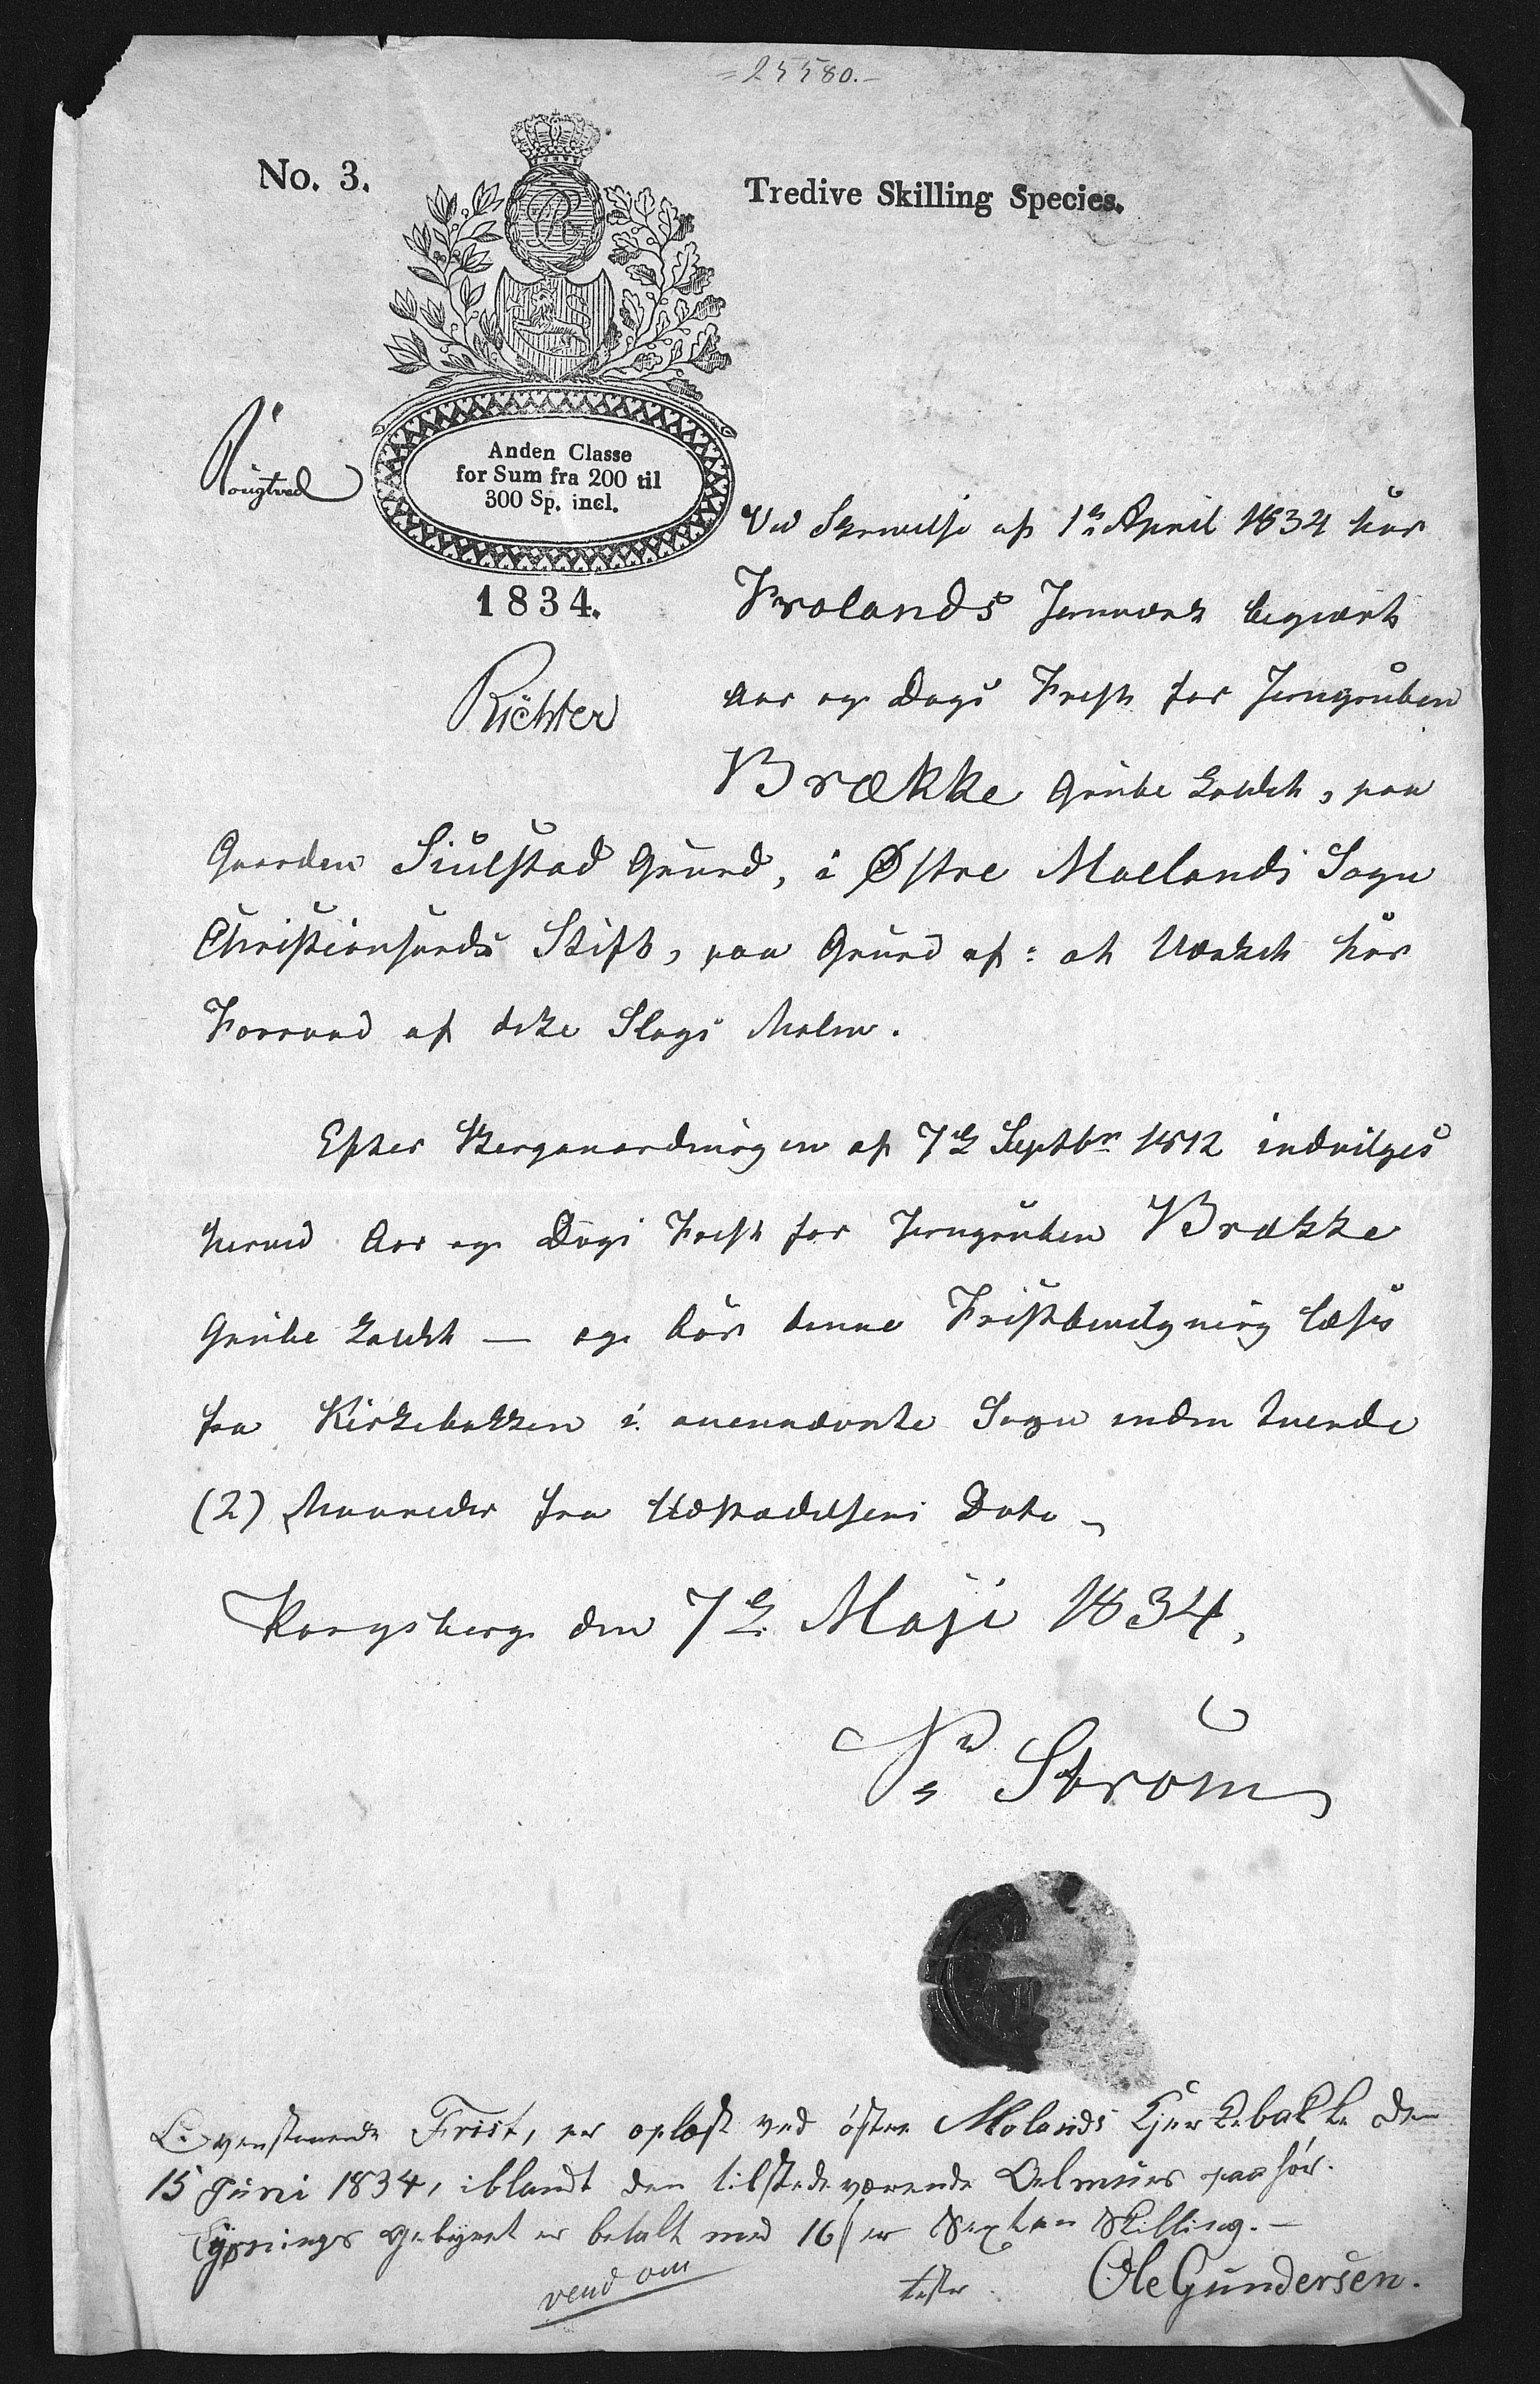 =25580.-
No. 3.
Tredive Skilling Species.
Anden Classe
for Sum fra 200 til
300 Sp. incl.
1834.
Rougtved
Richter
Ved Skrivelse af 1e April 1834 har
Frolands Jernværk begjært
Aar og Dags Frist for Jerngruben
Brække Grube kaldet, paa
Gaarden Siulstad Grund, i Østre Molands Sogn
Christiansands Stift, paa Grund af: at Værket har
Forraad af dette Slags Malm.
Efter Berganordningen af 7de Septbr 1812 indvilges
herved Aar og Dags Frist for Jerngruben Brække
Grube kaldet — og bør denne Fristbevilgning læses
fra Kirkebakken i ovennævnte Sogn inden tvende
(2) Maaneder fra Udstædelsens Dato
Kongsberg den 7de Maji 1834.
Strøm
Ovenstaaende Frist, er oplæst ved østre Molands Kjerkebakke den
15 Juni 1834, iblandt den tilstedeværende Almues paahør.
Lysnings Gebyret er betalt med 16 s er Sexten Skilling.-
vend om
tester. Ole Gundersen.